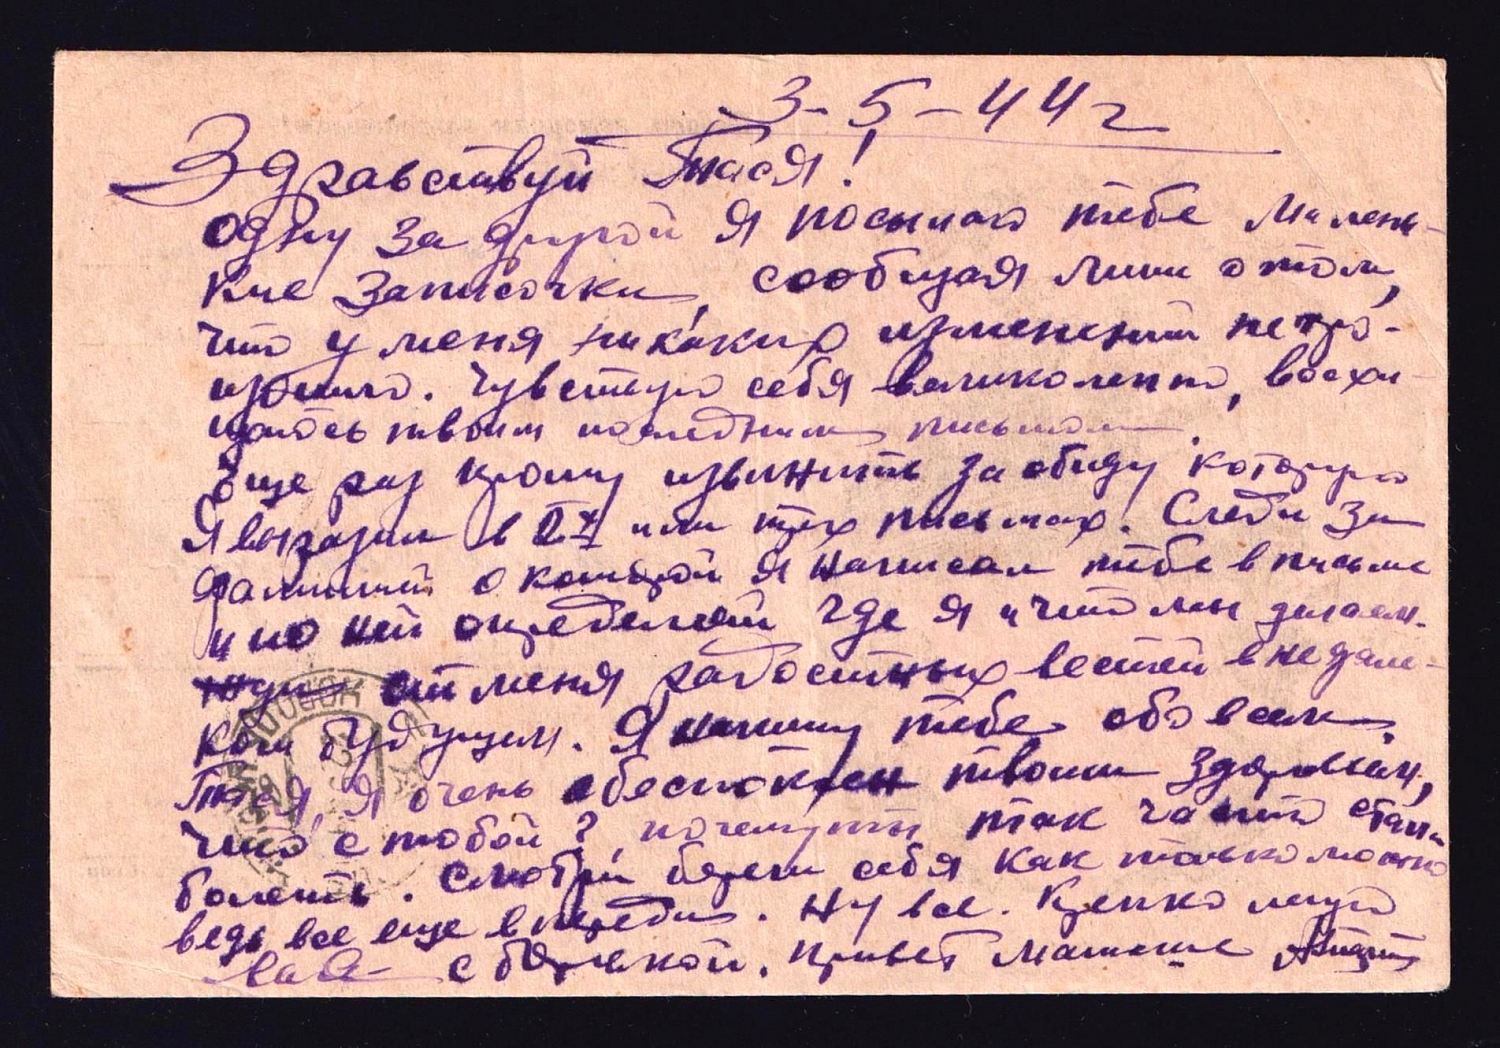 3-5-44 г
Здравствуй Тася!
одну за другой я посылаю тебе малень-
кие записочки, сообщая лишь о том,
что у меня никаких изменений не про-
изошло. Чувствую себя великолепно, восхи-
щаюсь твоим последним письмом.
Еще раз прошу извинить за обиду которую
я выразил в 2х или трех письмах. Следи за
фамилией о которой я написал тебе в письме
и по ней определяй где я и что мы делаем.
Жди от меня радостных вестей в недале-
ком будущем. Я напишу тебе обо всем.
Тася, я очень обеспокоен твоим здоровьем,
что с тобой? почему ты так часто стала
болеть. Смотри береги себя как только можно
ведь все еще впереди. Ну все. Крепко целую
с борькой. Привет мамаше